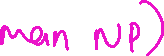 man NP)